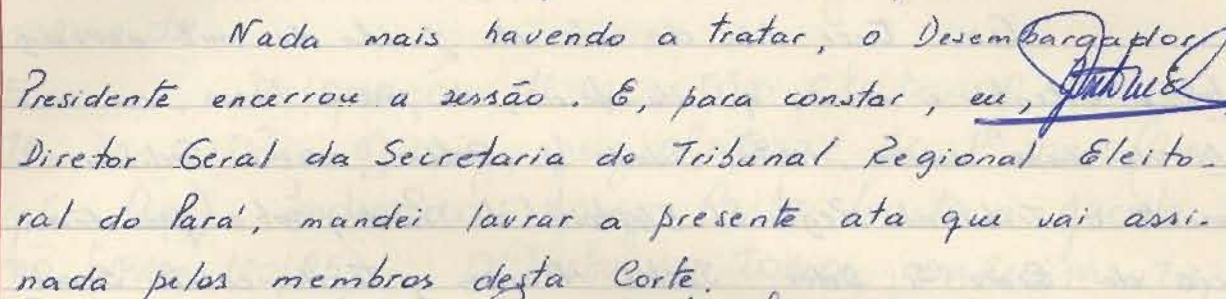 Nada mais havendo a tratar, o Desembargador
Presidente encerrou a sessão. E, para constar, eu,
Diretor Geral da Secretaria do Tribunal Regional Eleito-
ral do Pará, mandei lavrar a presente ata que vai assi-
nada pelos membros desta Corte.